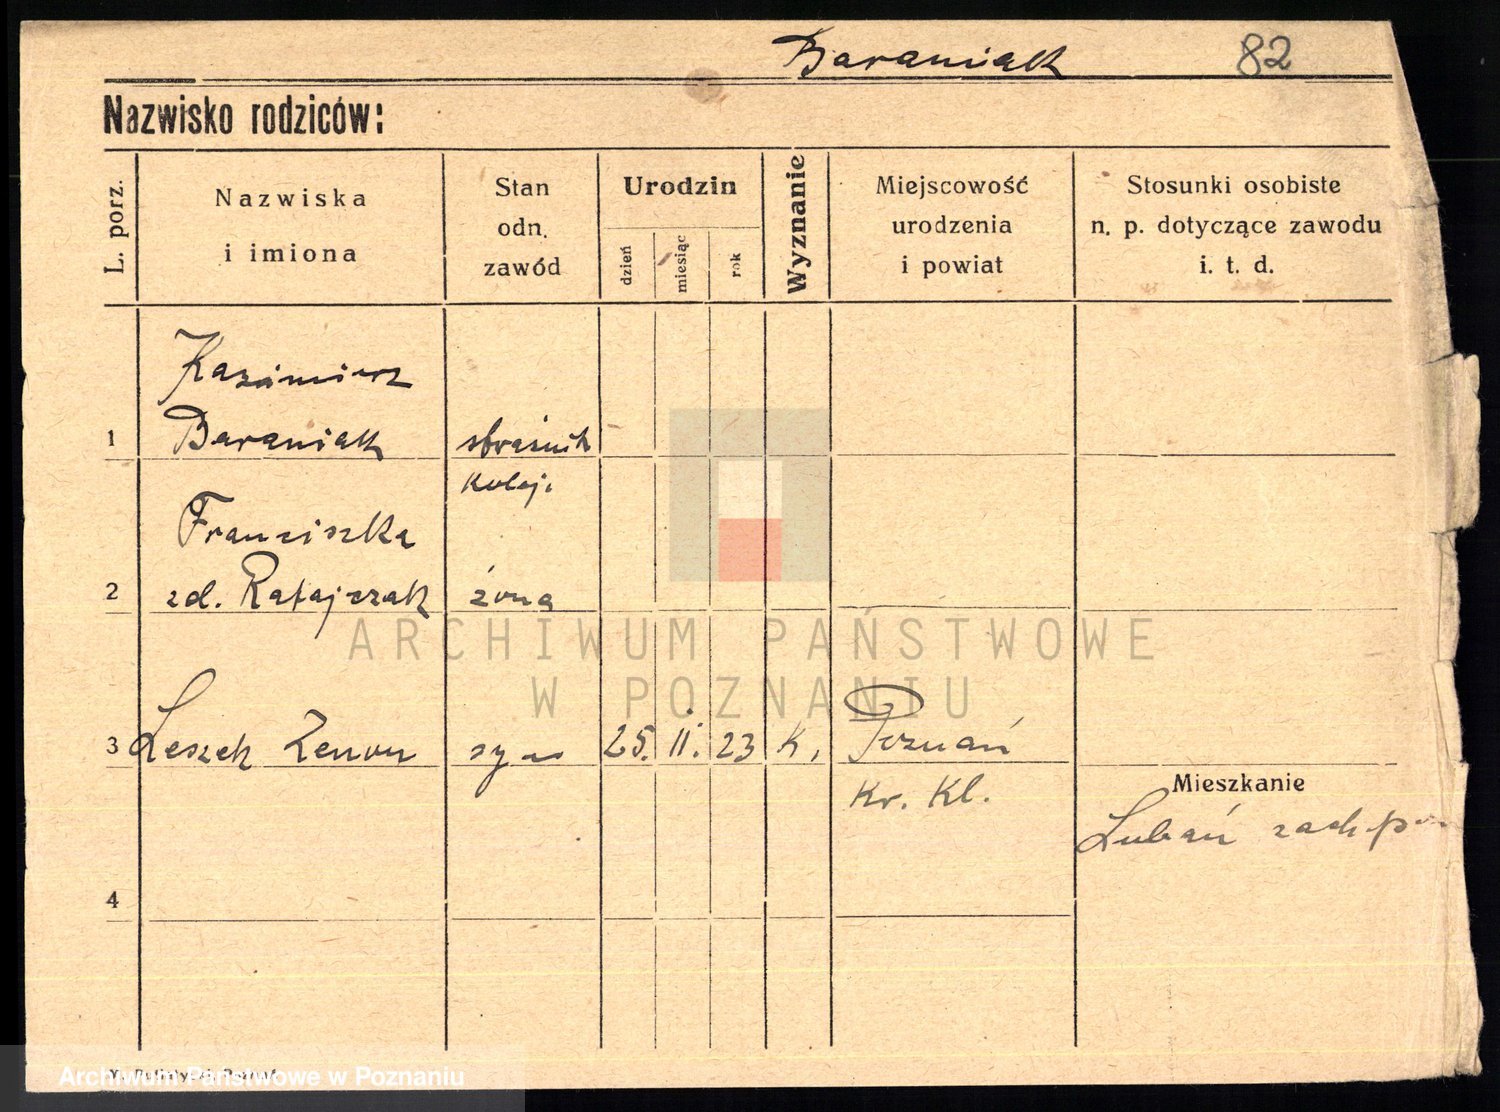 Baraniak 82
Nazwisko rodziców:
L. porz.
Nazwiska
i imiona
Stan
odn.
zawód
Urodzin
dzień
miesiąc
rok
Wyznanie
Miejscowość
urodzenia
i powiat
Stosunki osobiste
n. p. dotyczące zawodu
i. t. d.
Kazimierz
1 Baraniak strażnik
kolej.
Franciszka
2 zd. Ratajczak żona
ARCHIWUM PAŃSTWOWE
W POZNANIU
3 Leszek Zenon syn 25. II. 23 K. Poznań
Kr. Kl.
Mieszkanie
Lubań zach.
4
Archiwum Państwowe w Poznaniu